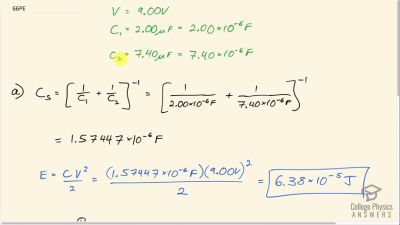 66PE
V = 9.00V
C₁ = 2.00μF = 2.00×10⁻⁶F
C₂ = 7.40μF = 7.40×10⁻⁶F
a) Cₛ = [1/C₁ + 1/C₂]⁻¹ = [1/2.00×10⁻⁶F + 1/7.40×10⁻⁶F]⁻¹
= 1.57447×10⁻⁶F
E = CV²/2 = (1.57447×10⁻⁶F)(9.00V)²/2 = 6.38×10⁻⁵J
College Physics
ANSWERS